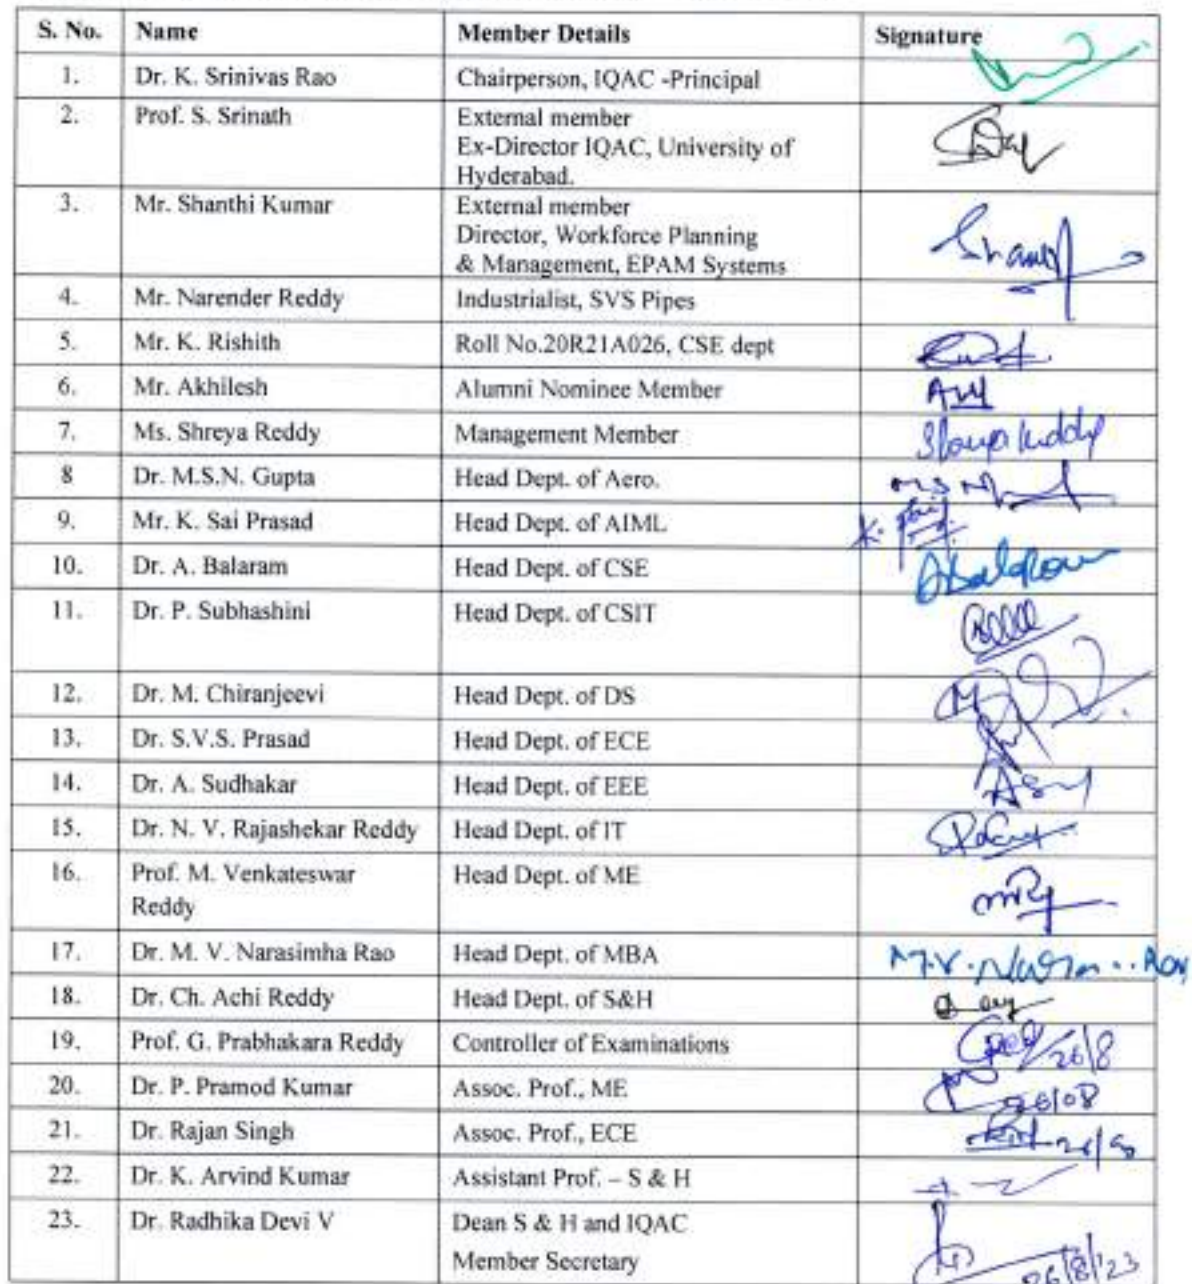 S. No. Name Member Details Signature
1. Dr. K. Srinivas Rao Chairperson, IQAC -Principal
2. Prof. S. Srinath External member
Ex-Director IQAC, University of
Hyderabad.
3. Mr. Shanthi Kumar External member
Director, Workforce Planning
& Management, EPAM Systems
4. Mr. Narender Reddy Industrialist, SVS Pipes
5. Mr. K. Rishith Roll No.20R21A026, CSE dept
6. Mr. Akhilesh Alumni Nominee Member
7. Ms. Shreya Reddy Management Member
8 Dr. M.S.N. Gupta Head Dept. of Aero.
9. Mr. K. Sai Prasad Head Dept. of AIML
10. Dr. A. Balaram Head Dept. of CSE
11. Dr. P. Subhashini Head Dept. of CSIT
12. Dr. M. Chiranjeevi Head Dept. of DS
13. Dr. S.V.S. Prasad Head Dept. of ECE
14. Dr. A. Sudhakar Head Dept. of EEE
15. Dr. N. V. Rajashekar Reddy Head Dept. of IT
16. Prof. M. Venkateswar Head Dept. of ME
Reddy
17. Dr. M. V. Narasimha Rao Head Dept. of MBA M.V.
18. Dr. Ch. Achi Reddy Head Dept. of S&H
19. Prof. G. Prabhakara Reddy Controller of Examinations 26/8
20. Dr. P. Pramod Kumar Assoc. Prof., ME 26/08
21. Dr. Rajan Singh Assoc. Prof., ECE
22. Dr. K. Arvind Kumar Assistant Prof. – S & H
23. Dr. Radhika Devi V Dean S & H and IQAC
Member Secretary 26/8/23